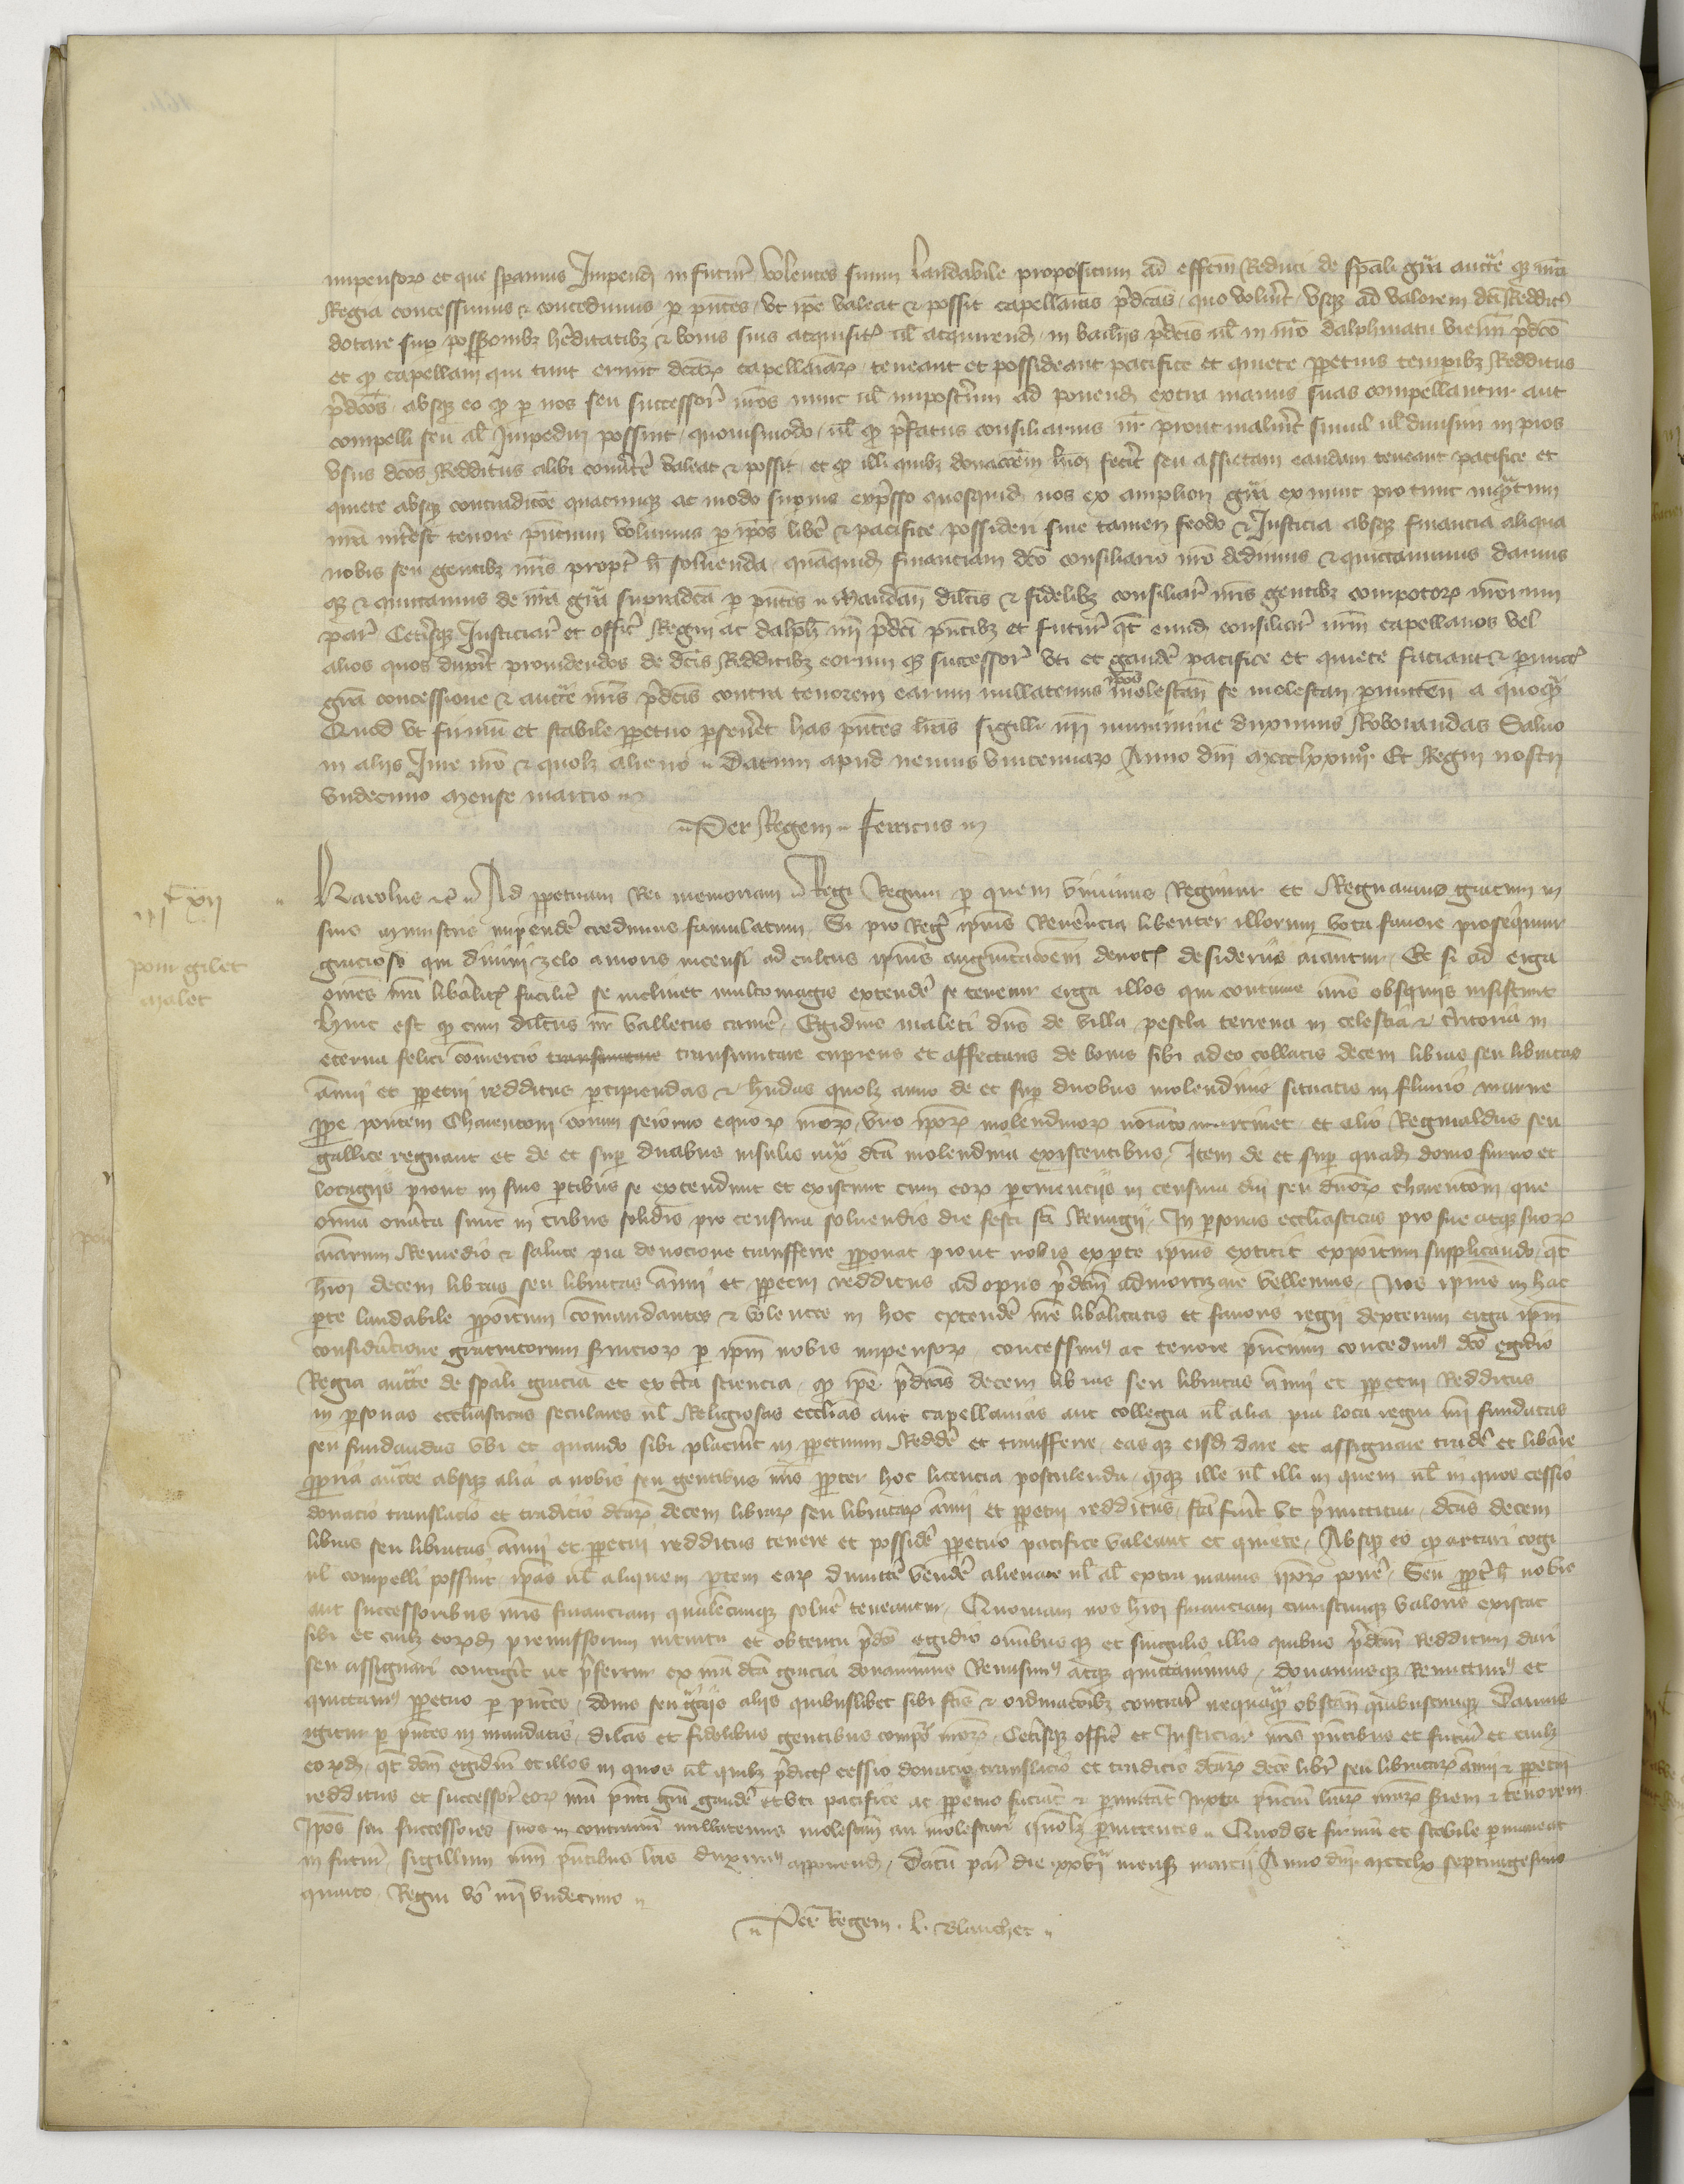 impensorum et que speramus Impendi in futurum volentes suum laudabile propositum ad effectum Reduci de speciali gracia auctoritate que nostra
Regia concessimus & concedimus per presentes vt ipse valeat & possit capellanias predictas quo voluerit vsque ad valorem dicti Redditus
dotare super possessionibus hereditatibus & bonis suis acquisitis vel acquirendis in bailliviis predictis vel in nostro dalphinatu viennensi predicto
et quod capellani qui tunc erunt dictarum capellaniarum teneant et possideant pacifice et quiete perpetuis temporibus Redditus
predictos absque eo quod per nos seu successores nostros nunc vel imposterum ad ponendum extra manus suas compellantur aut
compelli seu alias Impediri possint quouismodo vel quod prefatus consiliarius noster prout maluerit simul vel diuisim in pios
vsus dictos Redditus alibi conuertere valeat & possit et quod illi quibus donacionem huiusmodi fecerit seu assietam eandem teneant pacifice et
quiete absque contradictione quacunque ac modo superius expresso quosquidem nos ex ampliori gracia ex nunc pro tunc inquantum
nostra interest tenore presencium volumus per ipsos libere & pacifice possideri sine tamen feodo & Justicia absque financia aliqua
nobis seu gentibus nostris propter hoc soluenda quamquidem financiam dicto consiliario nostro dedimus & quictauimus damus
que & quictamus de nostra gracia supradicta per presentes Mandantes dilectis & fidelibus consiliariis nostris gentibus compotorum nostrorum
parisius Ceterisque Justiciariis et officiariis Regni ac dalphinatus nostri predicti presentibus et futuris quatenus eundem consiliarium nostrum capellanos vel
alios quos duxerit prouidendos de dictis Redditibus eorum que successores vti et gaudere pacifice et quiete faciant & permittant
gracia concessione & auctoritate nostris predictis contra tenorem earum nullatenus ipsos molestantes se molestari permittentes a quoquam
Quod vt firmum et stabile perpetuo perseueret has presentes litteras sigilli nostri munimine duximus Roborandas Saluo
in aliis Jure nostro & quolibet alieno Datum apud nemus vincennarum Anno domini mccclxxiiiiº Et Regni nostri
vndecimo mense marcio
Per Regem Ferricus
iiiᶜ xii
pour gilet
malet
Karolus etc Ad perpetuam Rei memoriam Regi Regum per quem viuimus Regimur et Regnamus gratum in
suis ministris impendere credimus famulatum Si pro Regis ipsius Reuerencia libenter illorum vota fauore prosequimur
gracioso qui diuini zelo amoris incensi ad cultus ipsius augmentacionem deuotis desideriis animantur Et si ad erga
omnes nostra liberalitas faciliter se inclinet multo magis extendere se tenetur erga illos qui continue nostris obsequiis insistunt
Hinc est quod cum dilectus noster valletus camere Egidius maleti dominus de villa pescla terrena in celestia & transitoria in
eterna felici comercio transmutare transmutare cupiens et affectans de bonis sibi a deo collatis decem libras seu libratas
annui et perpetui redditus percipiendas & habendas quolibet anno de et super duobus molendinis situatis in fluuio marne
prope pontem Charentoni coram seiorno equorum nostrorum vno ipsorum molendinorum nominato martinet et alio Reginaldus seu
gallice regnaut et de et super duabus insulis iuxta dicta molendina existentibus Item de et super quadam domo furno et
locagiis prout in suis partibus se extendunt et existunt cum eorum pertinenciis in censiua domini seu dominorum charentoni que
omnia onerata sunt in tribus solidis pro censiua soluendis die festi sancti Remigii In personas ecclesiasticas pro sue atque suorum
animarum Remedio & salute pia deuocione transferre proponat prout nobis ex parte ipsius extitit expositum supplicando quatenus
huiusmodi decem libras seu libratas annui et perpetui redditus ad opus predictum admortizare vellemus Nos ipsius in hac
parte laudabile propositum commandantes & volentes in hoc extendere nostre liberalitatis et fauoris regii dexteram erga ipsum
consideracione gratuitorum seruiciorum per ipsum nobis impensorum concessimus ac tenore presencium concedimus dicto egidio
Regia auctoritate de speciali gracia et ex certa sciencia quod ipse predictas decem libras seu libratas annui et perpetui Redditus
in personas ecclesiasticas seculares vel Religiosas ecclesias aut capellanias aut collegia vel alia pia loca regni nostri fundatas
seu fundandas vbi et quando sibi placuerit in perpetuum Reddere et transferre eas que eisdem dare et assignare tradere et liberare
propria auctoritate absque alia a nobis seu gentibus nostris propter hoc licencia postulenda quodque ille vel illi in quem vel in quos cessio
donacio translacio et tradicio dictarum decem librarum seu libratarum annui et perpetui redditus facta fuerit vt premittitur dictas decem
libras seu libratas annui et perpetui redditus tenere et possidere perpetuo pacifice valeant et quiete Absque eo quod artari cogi
vel compelli possint ipsas vel aliquam partem earum dimittere vendere alienare vel alias extra manus ipsorum ponere Seu propter hoc nobis
aut successoribus nostris financiam qualemcunque soluere teneantur Quoniam nos huiusmodi financiam cuiuscunque valoris existat
sibi et cuilibet eorumdem premissorum intuitu et obtentu predicto egidio omnibus que et singulis illis quibus predictum redditum dari
seu assignari contigerit ut prefertur ex nostra dicta gracia donauimus Remisimus atque quictauimus donamusque Remittimus et
quictamus perpetuo per presentes donis seu graciis aliis quibuslibet sibi factis & ordinacionibus contrariis nequaquam obstantibus quibuscunque Damus
igitur per presentes in mandatis dilectis et fidelibus gentibus compotorum nostrorum Ceterisque officiariis et Justiciariis nostris presentibus et futuris et cuilibet
eorumdem quatenus dictum egidium et illos in quos vel quibus predictis cessio donacio translacio et tradicio dictarum decem librarum seu libratarum annui & perpetui
redditus et successores eorum nostra presenti gracia gaudere et vti pacifice ac perpetuo faciant & permittant Iuxta presencium litterarum nostrarum seriem & tenorem
Ipsos seu successores suos in contrarium nullatenus molestantes aut molestari quomodolibet permittentes Quod vt firmum et stabile permaneat
in futurum sigillum nostrum presentibus litteris duximus apponendum Datum parisius die xxviª mensis marcii Anno domini mccclx septuagesimo
quarto Regni vero nostri vndecimo
Per Regem . L. Blanchet